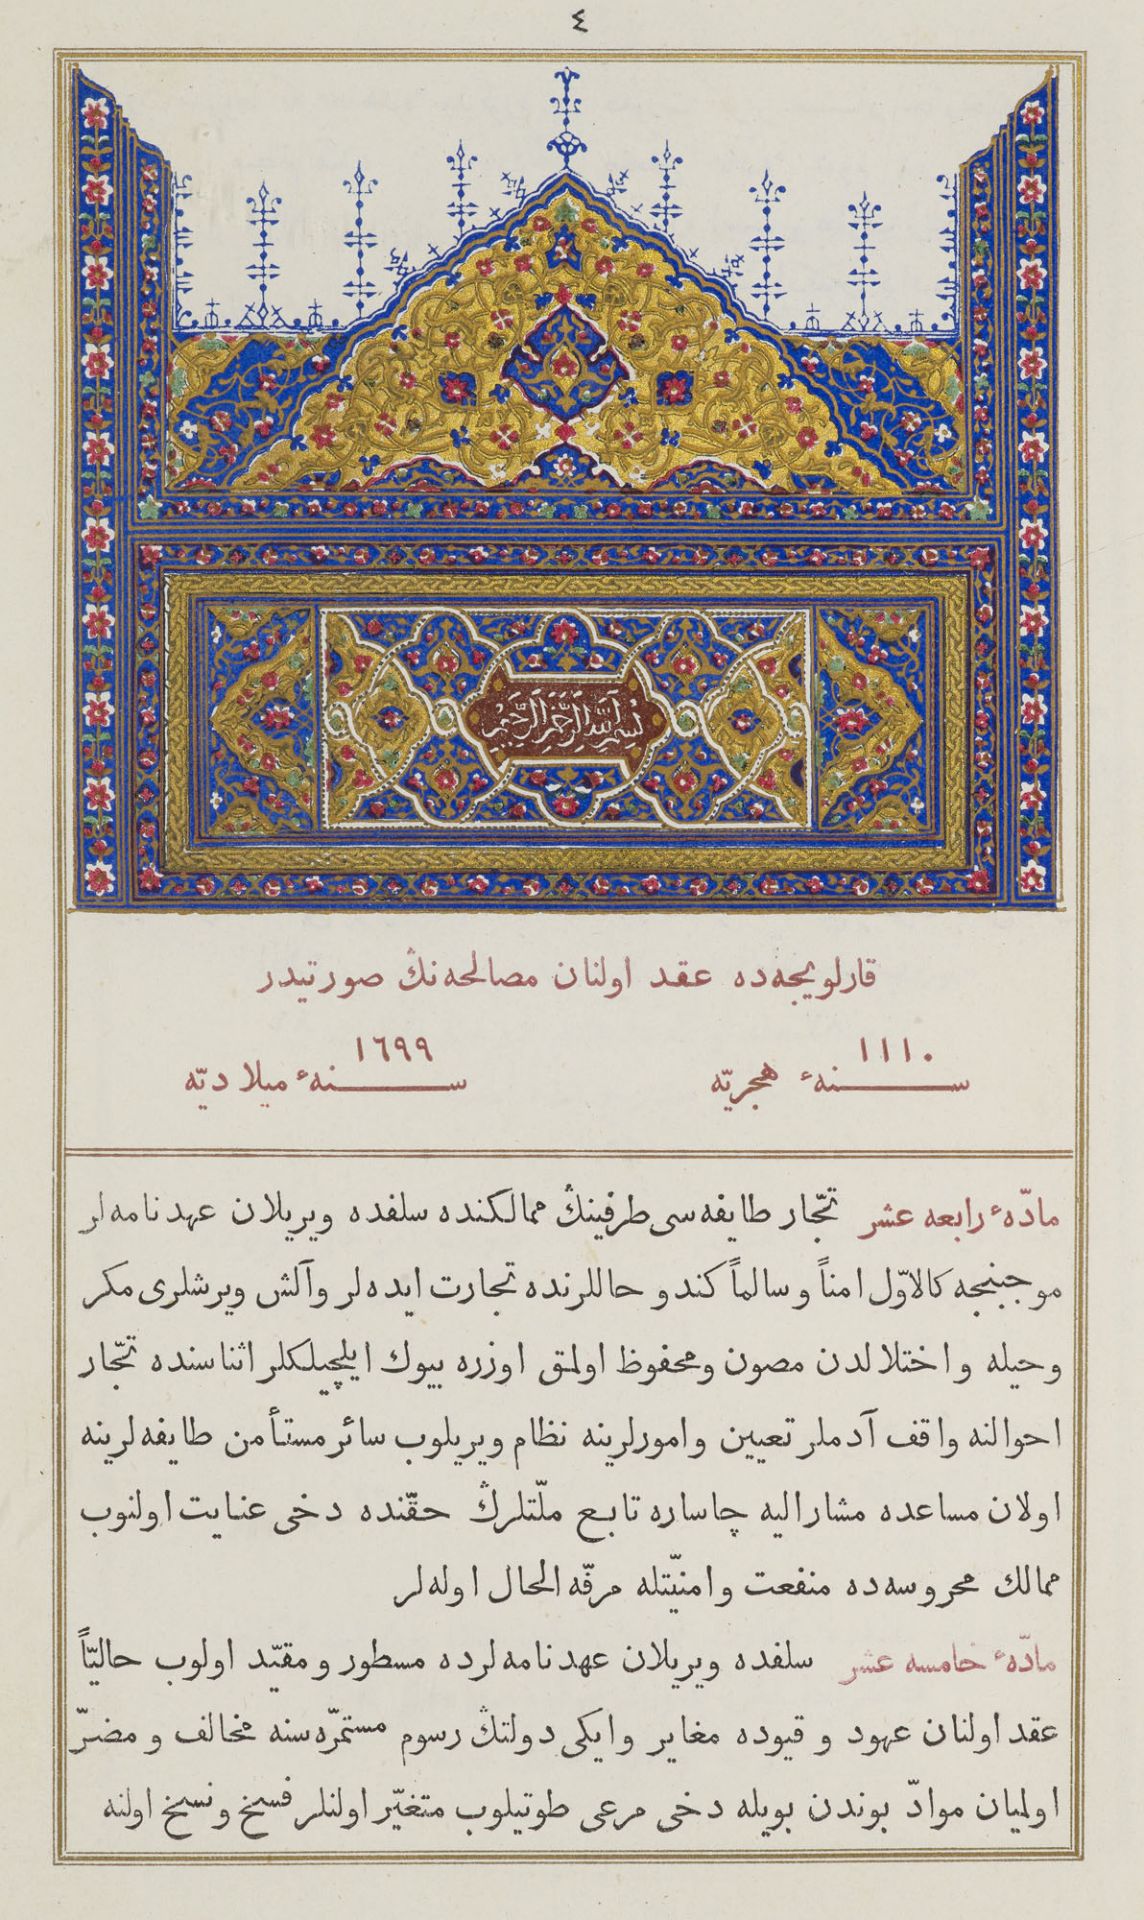 ٤
بسم الله الرحمن الرحيم
قارلويچه‌ده عقد اولنان مصالحه‌نڭ صورتیدر
سنهٔ هجریّه ١١١٠ سنهٔ میلادیّه ١٦٩٩
مادّهٔ رابعه عشر تجّار طایفه‌سی طرفینڭ ممالکنده سلفده ویریلان عهدنامه‌لر
موجبنجه کالاوّل امناً وسالماً کندو حاللرنده تجارت ایده‌لر وآلش ویرشلری مکر
وحیله واختلالدن مصون ومحفوظ اولمق اوزره بیوك ایلچیلکلر اثناسنده تجّار
احوالنه واقف آدملر تعیین وامورلرینه نظام ویریلوب سائر مستأمن طایفه‌لرینه
اولان مساعده مشارالیه چاساره تابع ملّتلرڭ حقّنده دخی عنایت اولنوب
ممالك محروسه‌ده منفعت وامنیّتله مرفّه الحال اوله‌لر
مادّهٔ خامسه عشر سلفده ویریلان عهدنامه‌لرده مسطور ومقیّد اولوب حالیّاً
عقد اولنان عهود وقیوده مغایر وایکی دولتڭ رسوم مستمرّه‌سنه مخالف ومضرّ
اولمیان موادّ بوندن بویله دخی مرعی طوتیلوب متغیّر اولنلر فسخ ونسخ اولنه